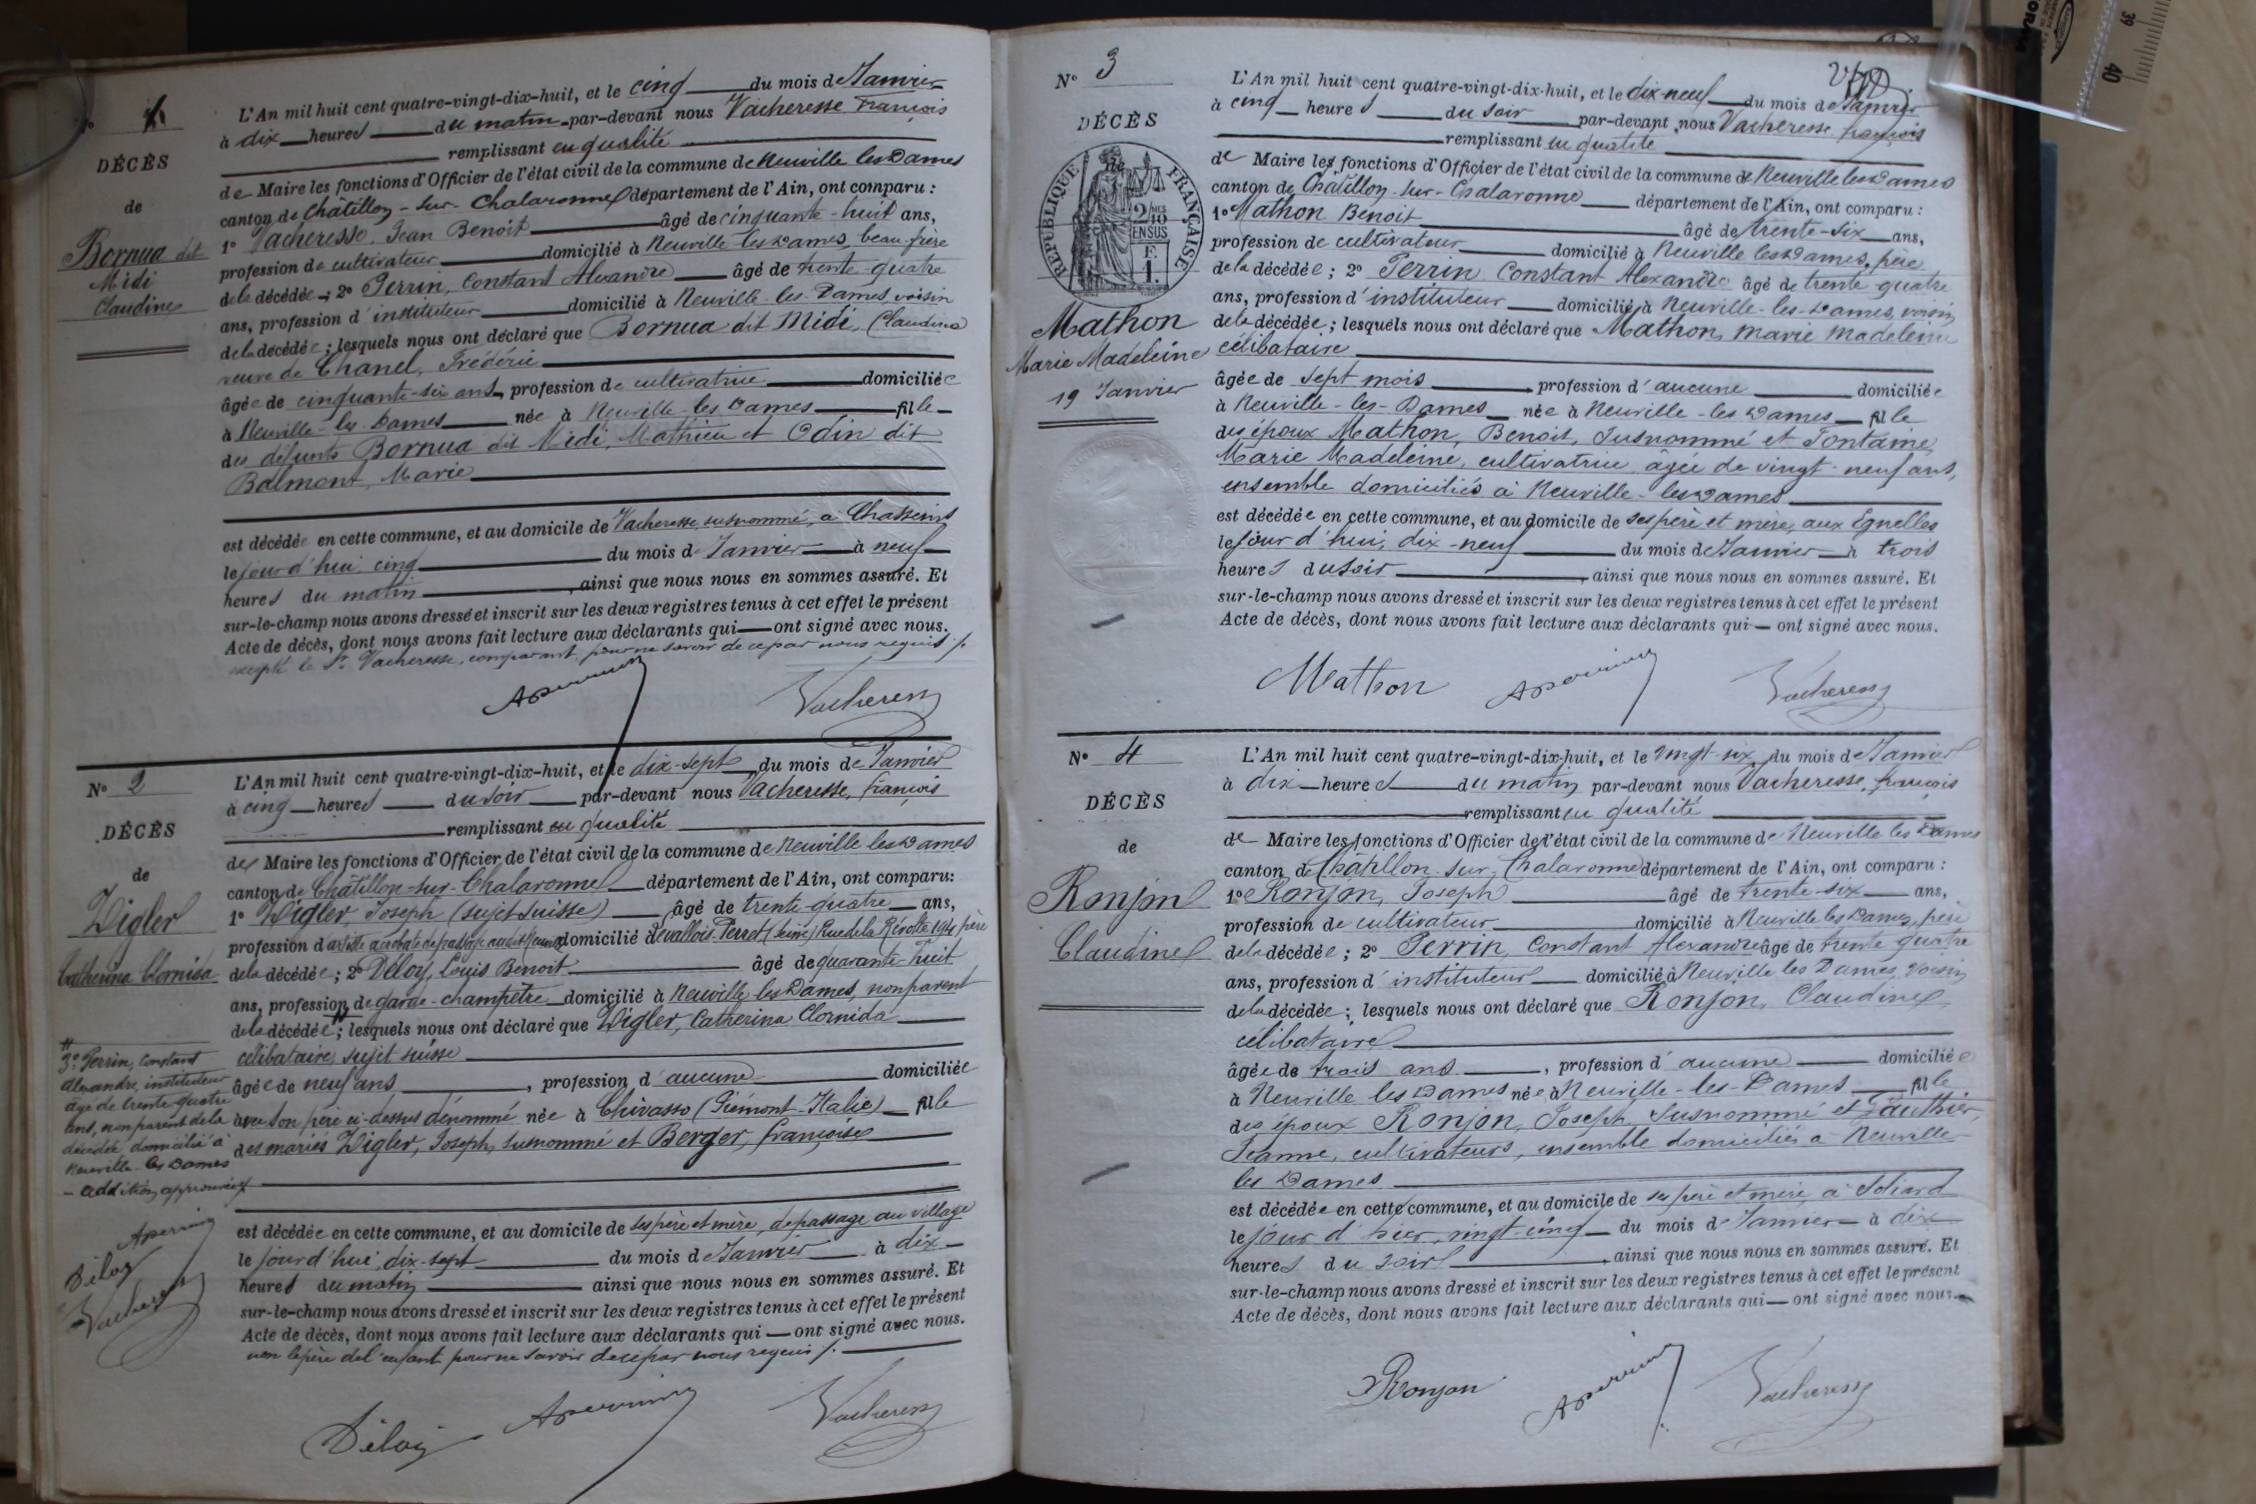 N° 1.
DÉCÈS
de
Bornua dit
Midi
Claudine
L'An mil huit cent quatre-vingt-dix-huit, et le cinq du mois de Janvier
à dix heures du matin par-devant nous Vacheresse François
remplissant en qualité
de Maire les fonctions d'Officier de l'état civil de la commune de Neuville les Dames
canton de Châtillon-sur-Chalaronne département de l'Ain, ont comparu :
1° Vacheresse, Jean Benoit âgé de cinquante-huit ans,
profession de cultivateur domicilié à Neuville-les-Dames, beau-frère
de la décédée ; 2° Perrin, Constant Alexandre âgé de trente-quatre
ans, profession d'instituteur domicilié à Neuville-les-Dames, voisin
de la décédée ; lesquels nous ont déclaré que Bornua dit Midi, Claudine
veuve de Chanel, Frédéric
âgée de cinquante-six ans, profession de cultivatrice domiciliée
à Neuville-les-Dames née à Neuville-les-Dames fille
des défunts Bornua dit Midi, Mathieu et Odin dit
Balmont, Marie
est décédée en cette commune, et au domicile de Vacheresse susnommé, à Chasseins
le jourd'hui cinq du mois de Janvier à neuf
heures du matin, ainsi que nous nous en sommes assuré. Et
sur-le-champ nous avons dressé et inscrit sur les deux registres tenus à cet effet le présent
Acte de décès, dont nous avons fait lecture aux déclarants qui ont signé avec nous.
excepté le Sr Vacheresse, comparant, pour ne savoir de ce par nous requis /.
Aperrin Vacheresse
N° 2
DÉCÈS
de
Digler
Catherina Clornida
L'An mil huit cent quatre-vingt-dix-huit, et le dix-sept du mois de Janvier
à cinq heures du soir par-devant nous Vacheresse, François
remplissant en qualité
de Maire les fonctions d'Officier de l'état civil de la commune de Neuville les Dames
canton de Châtillon-sur-Chalaronne département de l'Ain, ont comparu :
1° Digler, Joseph (sujet suisse) âgé de trente-quatre ans,
profession d'artiste acrobate de passage audit Neuville domicilié Levallois-Perret (Seine) Rue de la Révolte père
de la décédée ; 2° Déloy, Louis Benoit âgé de quarante-huit
ans, profession de garde-champêtre domicilié à Neuville-les-Dames, non parent
de la décédée ; lesquels nous ont déclaré que Digler, Catherina Clornida
célibataire, sujet suisse
âgée de neuf ans, profession d'aucune domiciliée
avec son père ci-dessus dénommé née à Chivasso (Piémont-Italie) fille
des mariés Digler, Joseph, susnommé et Berger, Françoise
3° Perrin, Constant
Alexandre, instituteur
âgé de trente-quatre
ans, non parent de la
décédée domicilié à
Neuville-les-Dames
- addition approuvée /.
Aperrin
Déloy
Vacheresse
est décédée en cette commune, et au domicile de ses père et mère, de passage au village
le jourd'hui dix-sept du mois de Janvier à dix
heures du matin ainsi que nous nous en sommes assuré. Et
sur-le-champ nous avons dressé et inscrit sur les deux registres tenus à cet effet le présent
Acte de décès, dont nous avons fait lecture aux déclarants qui ont signé avec nous.
non le père de l'enfant pour ne savoir de ce par nous requis /.
Déloy Aperrin Vacheresse
N° 3
DÉCÈS
RÉPUBLIQUE FRANÇAISE
2/10 MES
EN SUS
F.
1.
Mathon
Marie Madeleine
19 Janvier
L'An mil huit cent quatre-vingt-dix-huit, et le dix-neuf du mois de Janvier
à cinq heures du soir par-devant nous Vacheresse François
remplissant en qualité
de Maire les fonctions d'Officier de l'état civil de la commune de Neuville les Dames
canton de Châtillon-sur-Chalaronne département de l'Ain, ont comparu :
1° Mathon Benoit âgé de trente-six ans,
profession de cultivateur domicilié à Neuville les Dames, père
de la décédée ; 2° Perrin Constant Alexandre âgé de trente-quatre
ans, profession d'instituteur domicilié à Neuville-les-Dames, voisin
de la décédée ; lesquels nous ont déclaré que Mathon, Marie Madeleine
célibataire
âgée de sept mois, profession d'aucune domiciliée
à Neuville-les-Dames née à Neuville-les-Dames fille
des époux Mathon, Benoit, susnommé et Fontaine,
Marie Madeleine, cultivatrice âgée de vingt-neuf ans,
ensemble domiciliés à Neuville-les-Dames
est décédée en cette commune, et au domicile de ses père et mère, aux Egnelles
le jour d'hui, dix-neuf du mois de Janvier à trois
heures du soir, ainsi que nous nous en sommes assuré. Et
sur-le-champ nous avons dressé et inscrit sur les deux registres tenus à cet effet le présent
Acte de décès, dont nous avons fait lecture aux déclarants qui ont signé avec nous.
Mathon Aperrin Vacheresse
N° 4
DÉCÈS
de
Ronjon
Claudine
L'An mil huit cent quatre-vingt-dix-huit, et le vingt-six du mois de Janvier
à dix heures du matin par-devant nous Vacheresse, François
remplissant en qualité
de Maire les fonctions d'Officier de l'état civil de la commune de Neuville les Dames
canton de Châtillon-sur-Chalaronne département de l'Ain, ont comparu :
1° Ronjon, Joseph âgé de trente-six ans,
profession de cultivateur domicilié à Neuville les Dames, père
de la décédée ; 2° Perrin, Constant Alexandre âgé de trente quatre
ans, profession d'instituteur domicilié à Neuville les Dames, voisin
de la décédée ; lesquels nous ont déclaré que Ronjon, Claudine
célibataire
âgée de trois ans, profession d'aucune domiciliée
à Neuville les Dames née à Neuville-les-Dames fille
des époux Ronjon, Joseph, susnommé et Gauthier,
Jeanne, cultivateurs, ensemble domiciliés à Neuville
les Dames
est décédée en cette commune, et au domicile de ses père et mère, à Soliard
le jour d'hier, vingt-cinq du mois de Janvier à dix
heures du soir, ainsi que nous nous en sommes assuré. Et
sur-le-champ nous avons dressé et inscrit sur les deux registres tenus à cet effet le présent
Acte de décès, dont nous avons fait lecture aux déclarants qui ont signé avec nous.
Ronjon Aperrin Vacheresse
39
40